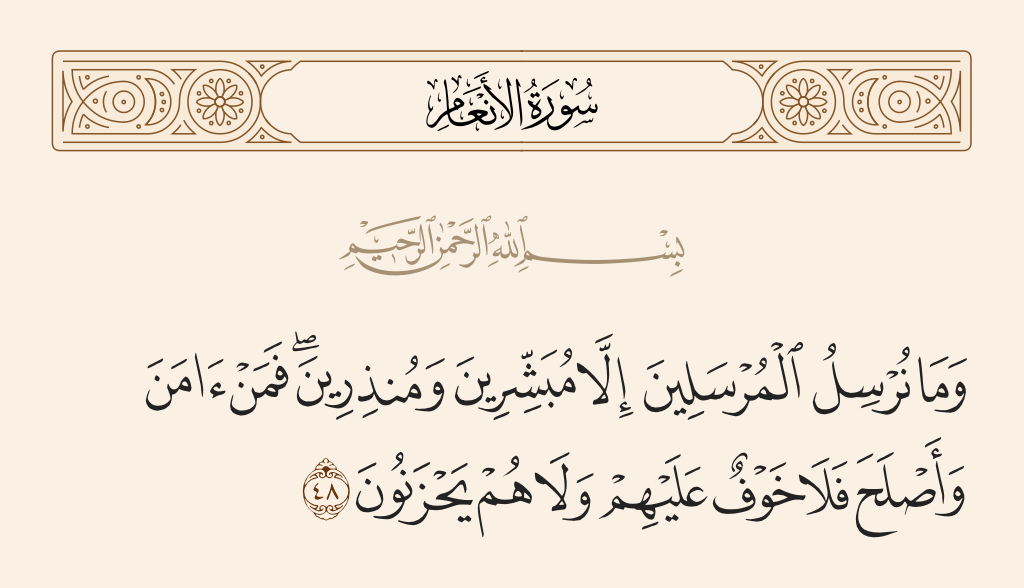 سُورَةُ الأَنْعَامِ
بِسْمِ ٱللَّهِ ٱلرَّحْمَٰنِ ٱلرَّحِيمِ
وَمَا نُرْسِلُ ٱلْمُرْسَلِينَ إِلَّا مُبَشِّرِينَ وَمُنذِرِينَ ۖ فَمَنْ ءَامَنَ
وَأَصْلَحَ فَلَا خَوْفٌ عَلَيْهِمْ وَلَا هُمْ يَحْزَنُونَ ٤٨